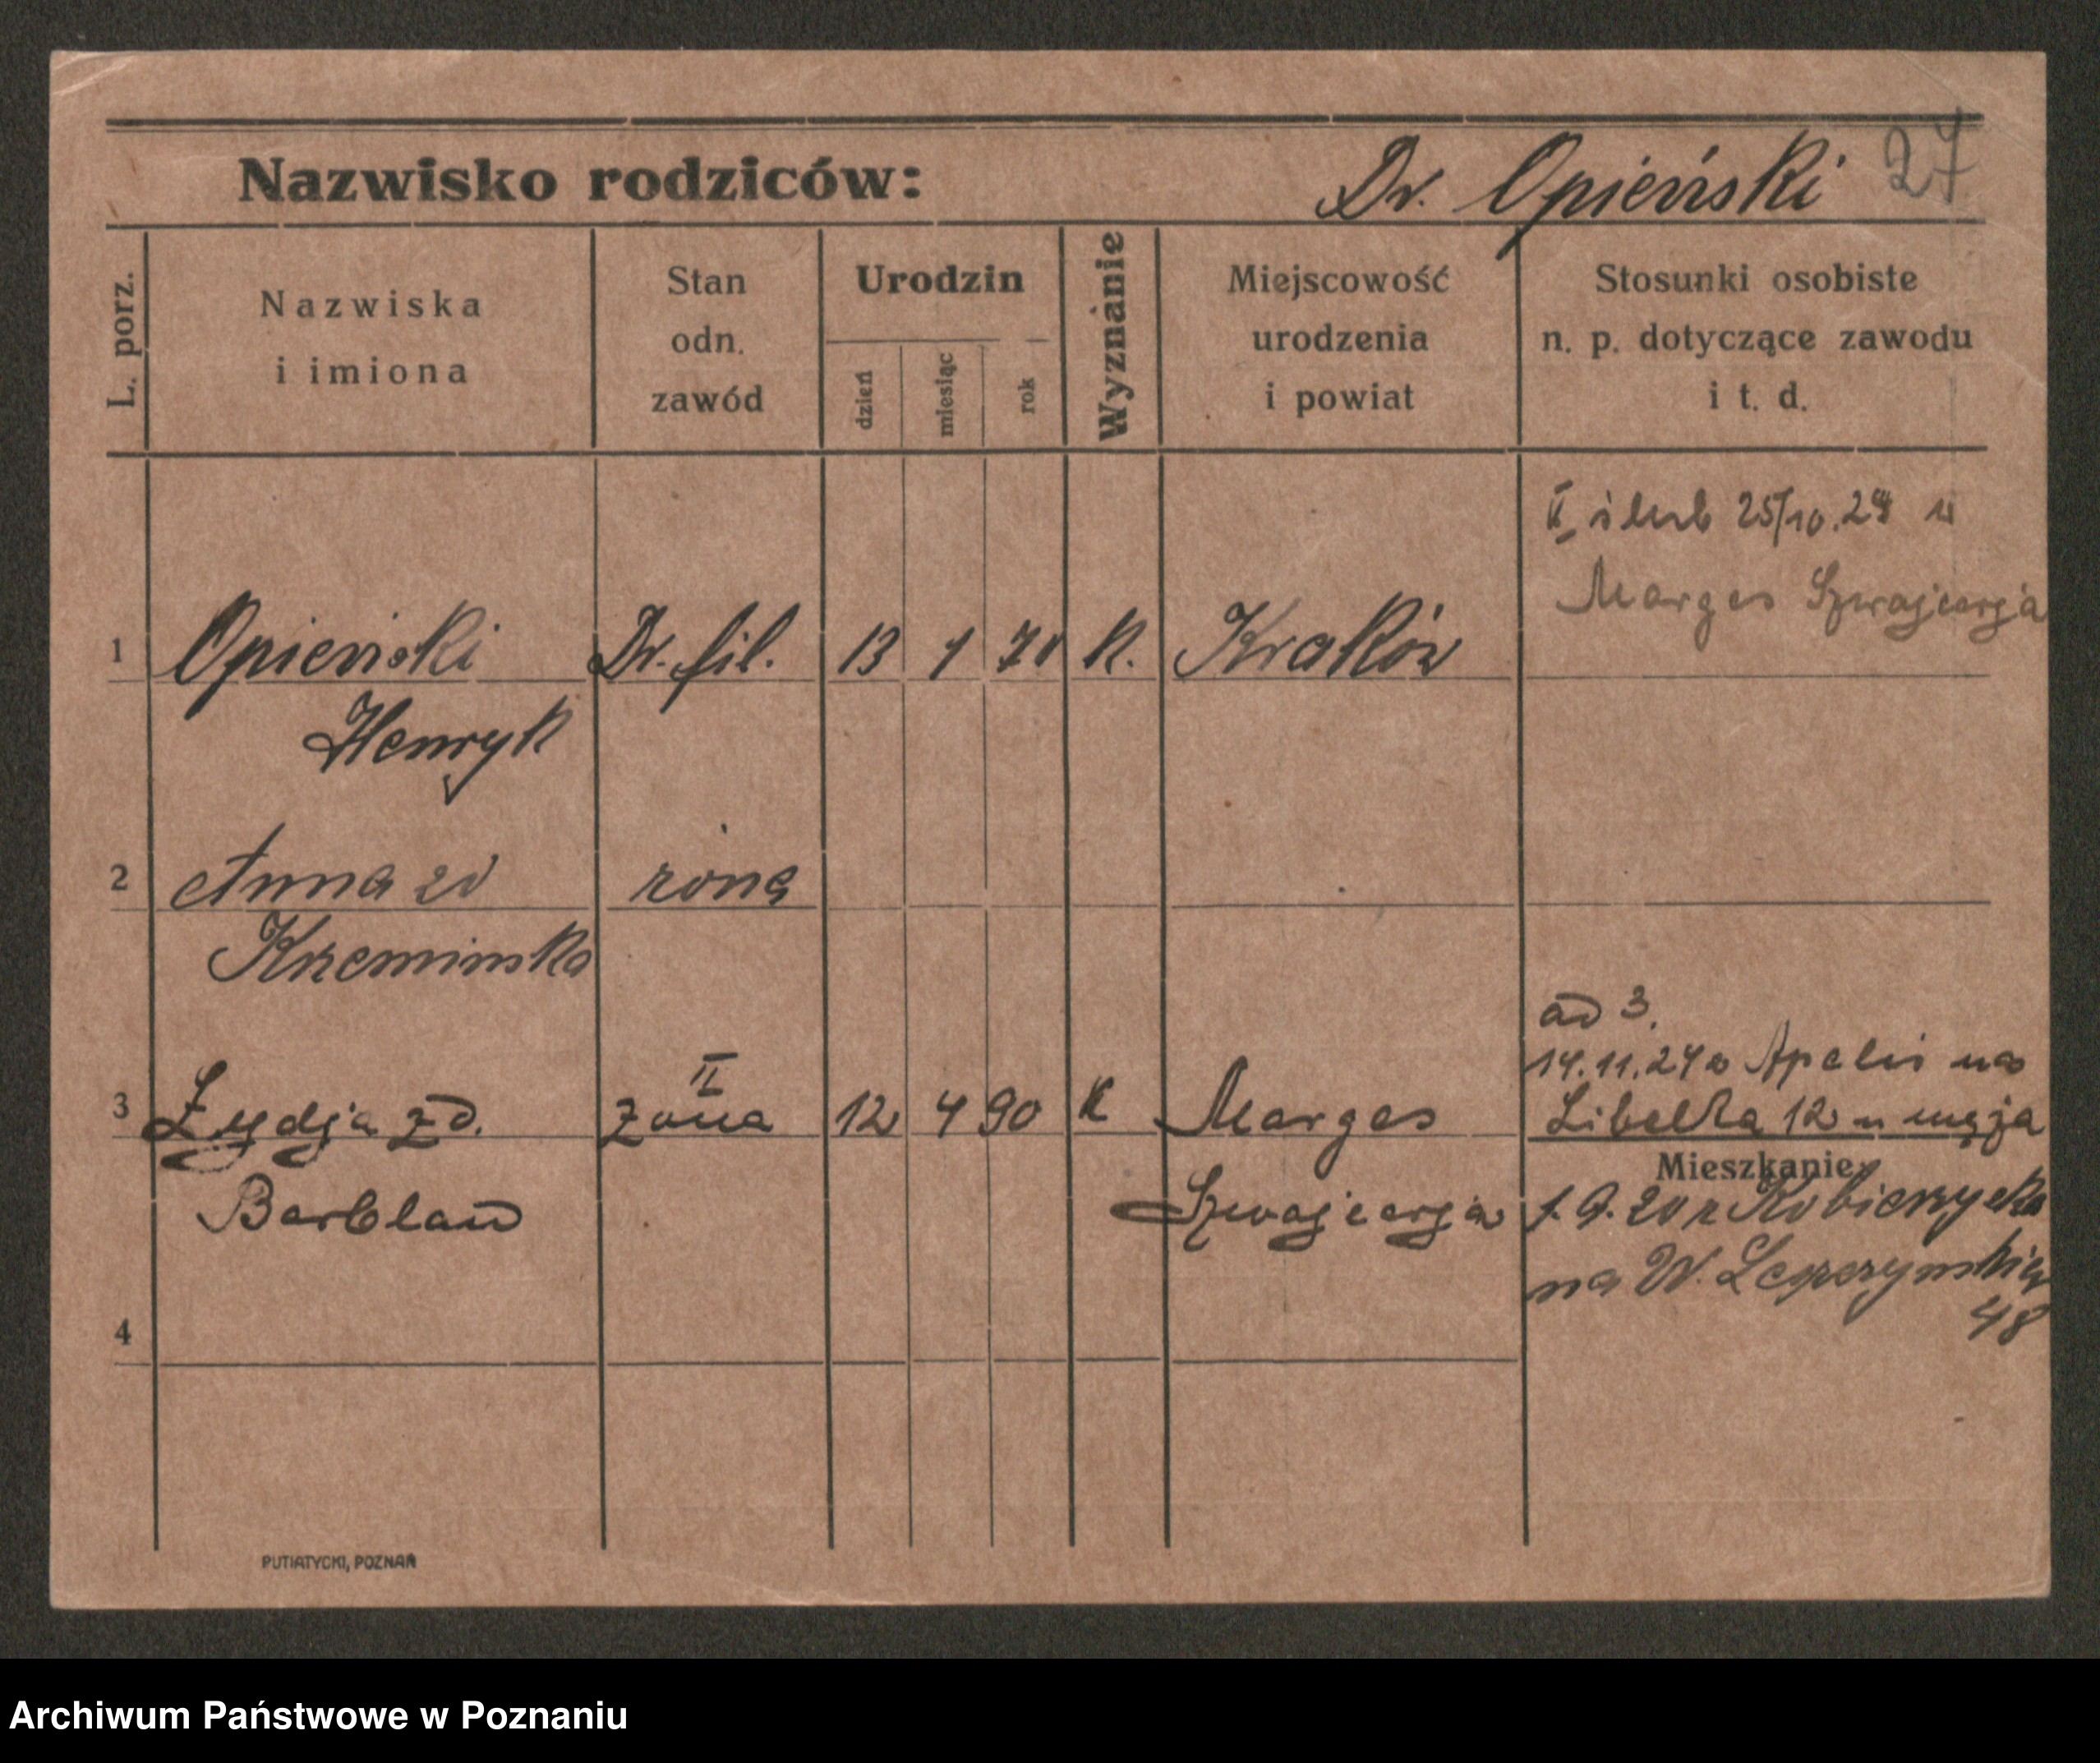 Nazwisko rodziców: Dr. Opieński 27
L. porz.
Nazwiska
i imiona
Stan
odn.
zawód
Urodzin
dzień
miesiąc
rok
Wyznanie
Miejscowość
urodzenia
i powiat
Stosunki osobiste
n. p. dotyczące zawodu
i t. d.
II ślub 25/10.24 w
Morges Szwajcarja
1 Opieński Dr. fil. 13 1 70 k. Kraków
Henryk
2 Anna zd żona
Krzemińska
ad 3.
14.11.24 z Apelis na
3 Lydja zd. II żona 12 4 90 k Morges Libelta 12 u męża
Mieszkanie:
Barblan Szwajcarja 1.9.20 z Kobierzycka
na W. Leszczyńskiej
48
4
PUTIATYCKI, POZNAŃ
Archiwum Państwowe w Poznaniu